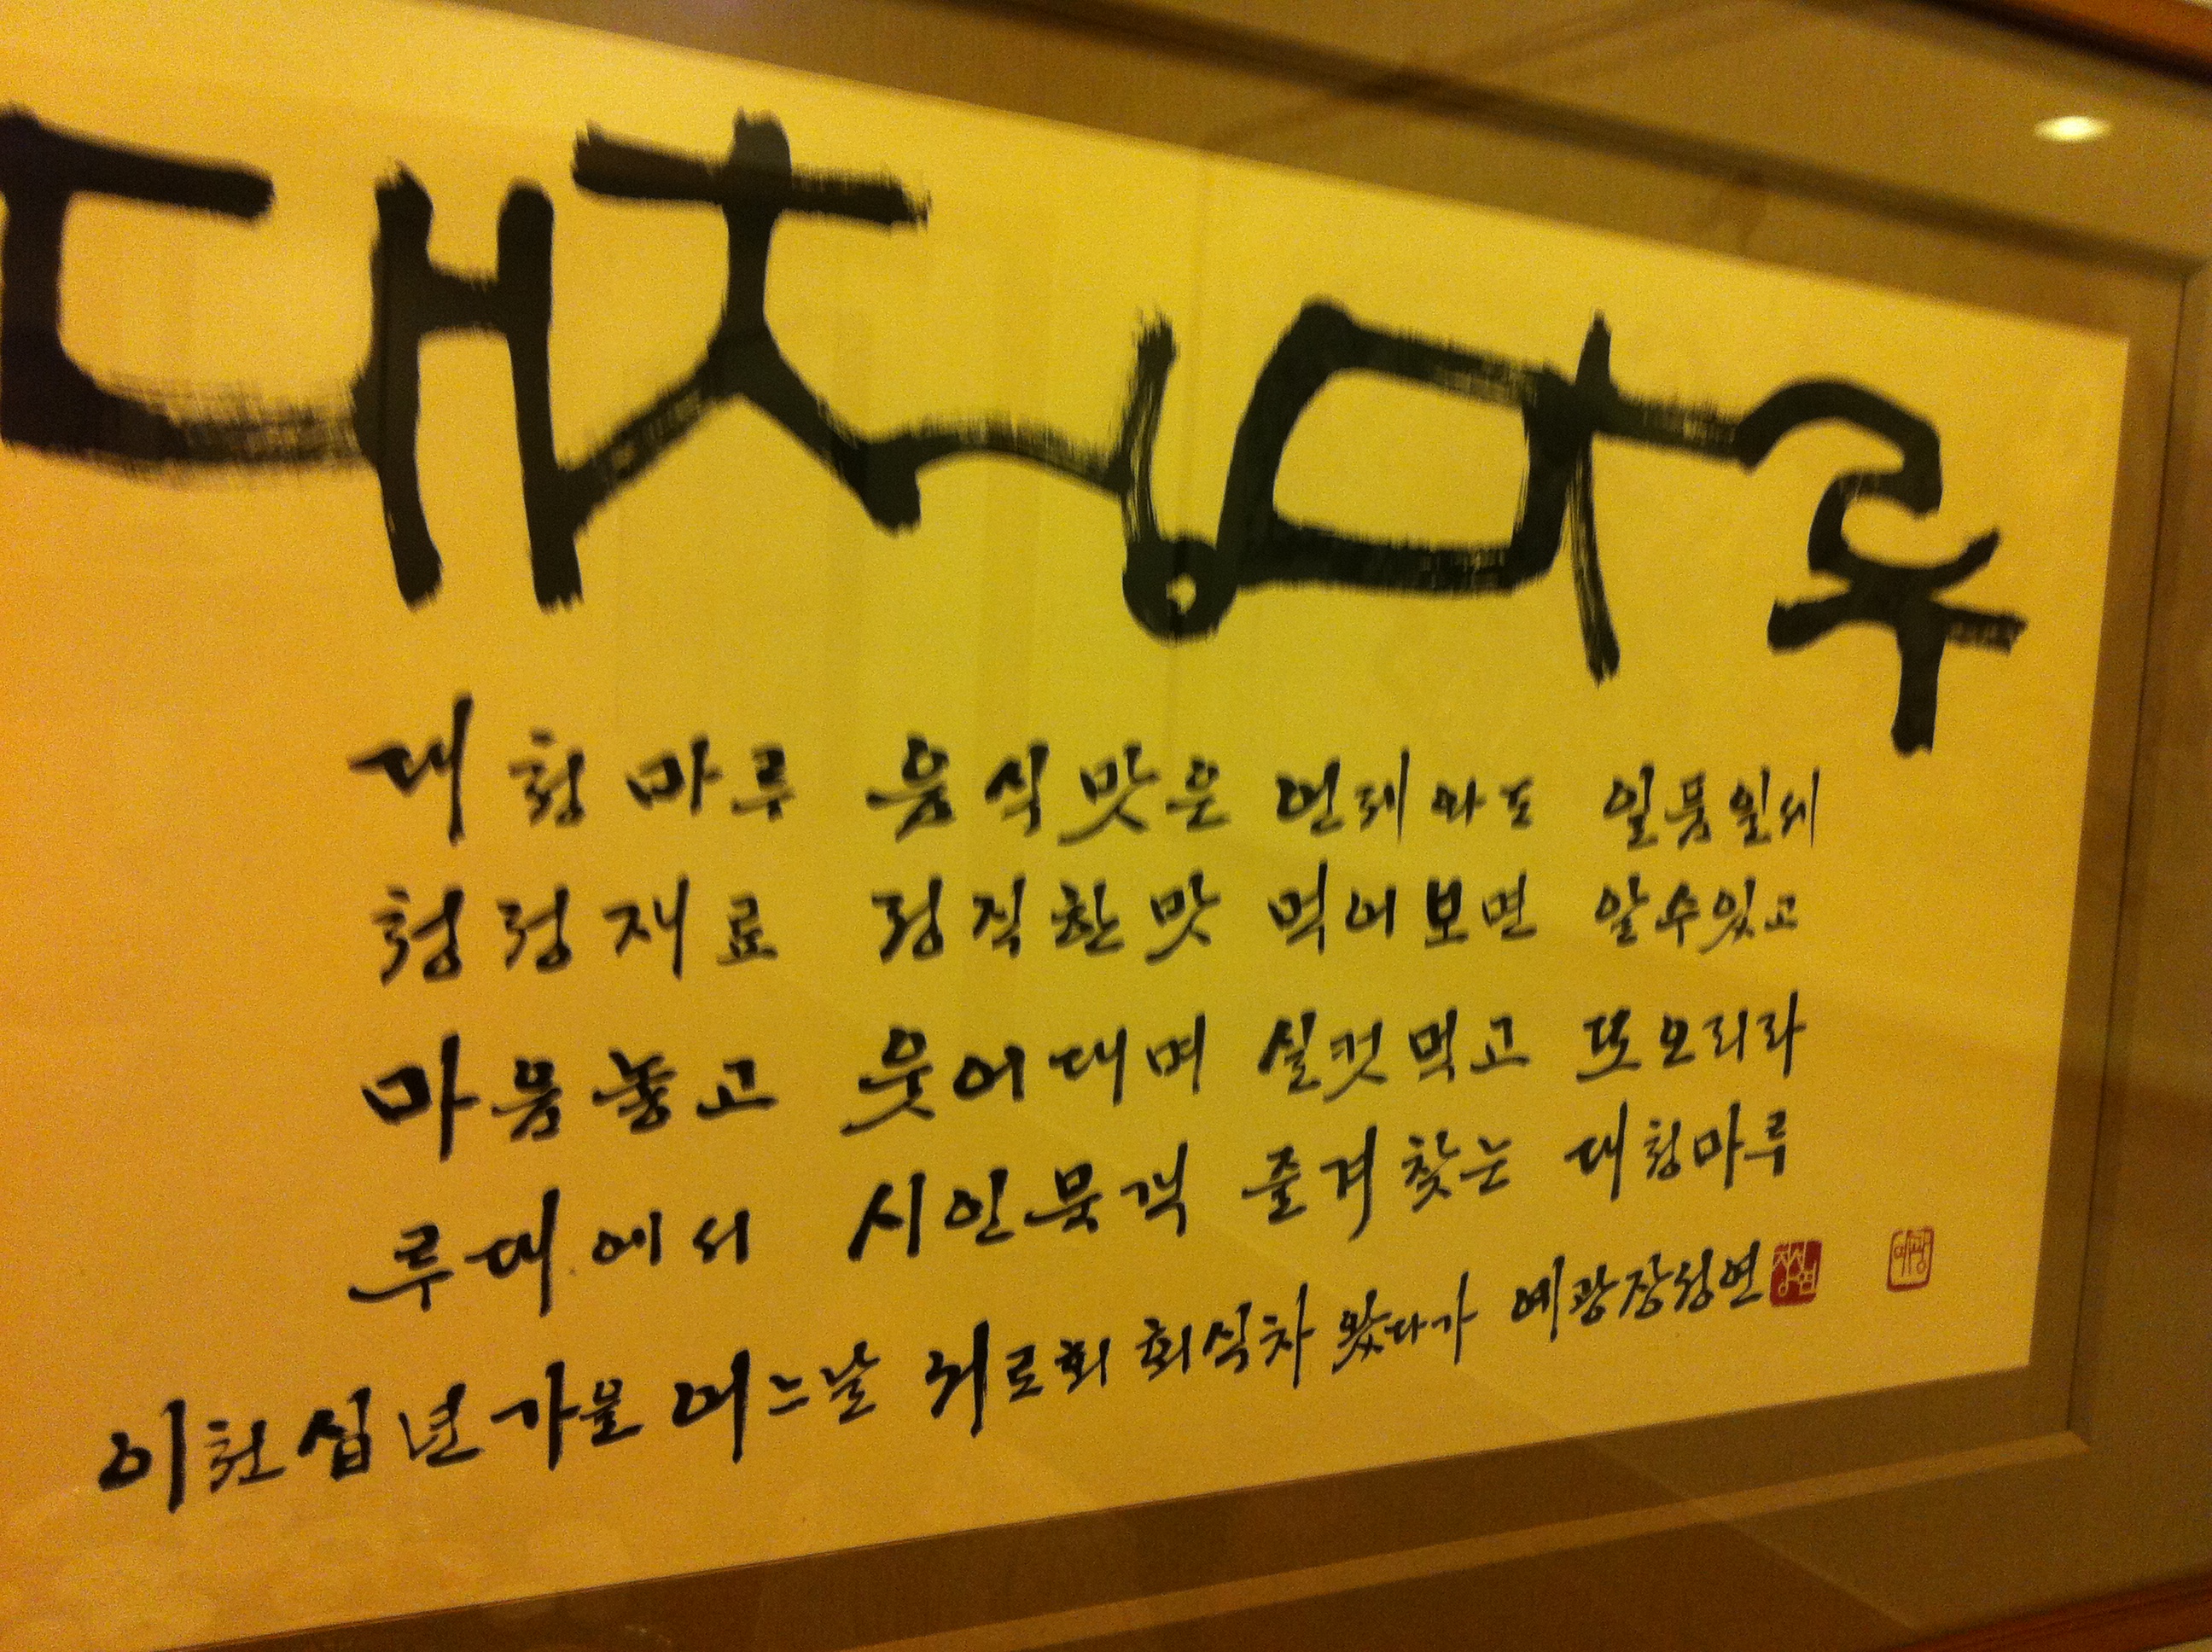 대청마루
대청마루 음식맛은 언제와도 일품일세
청정재료 정직한맛 먹어보면 알수있고
마음놓고 웃어대며 실컷먹고 또오리라
루대에서 시인묵객 즐겨찾는 대청마루
이천십년 가을 어느날 귀로회 회식차 왔다가 예광장성연
예광